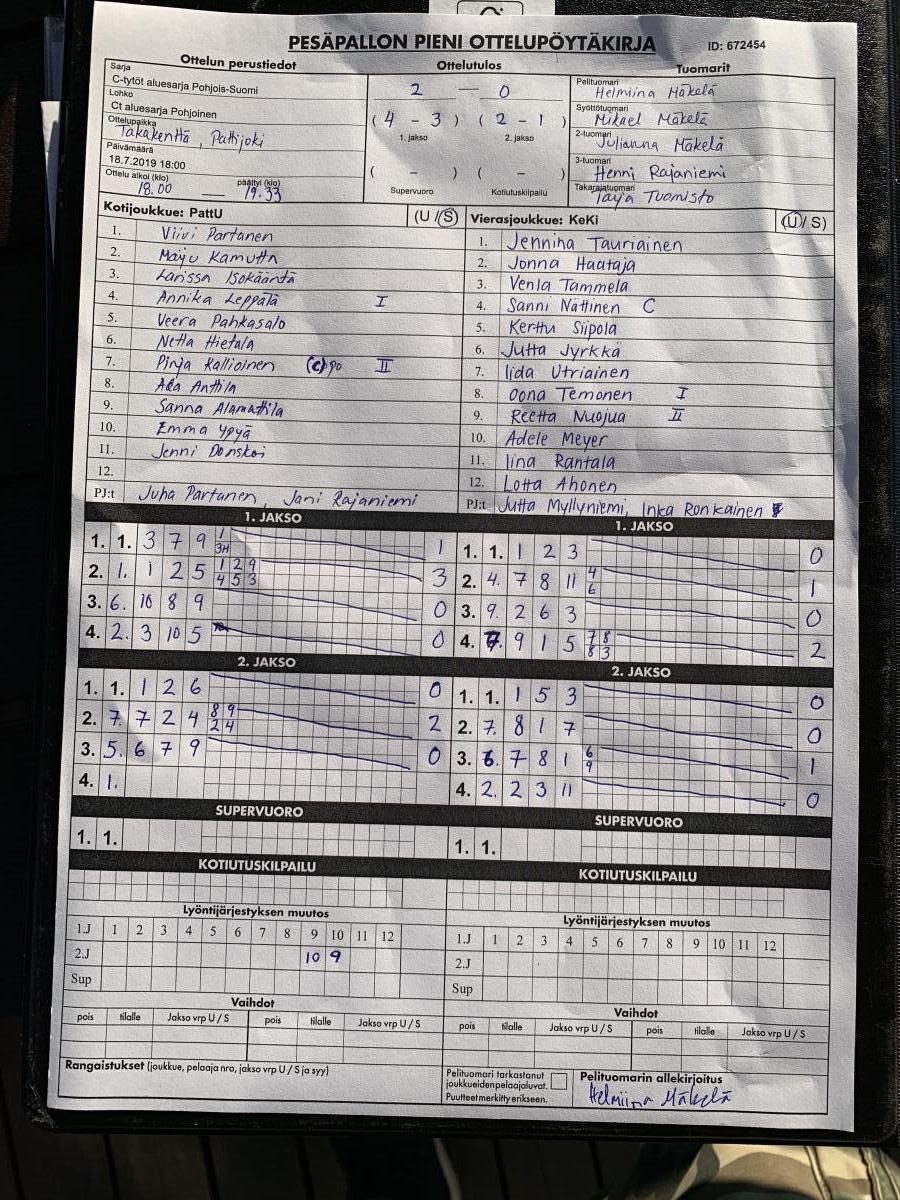 PESÄPALLON PIENI OTTELUPÖYTÄKIRJA
ID: 672454
Ottelun perustiedot
Sarja
C-tytöt aluesarja Pohjois-Suomi
Lohko
Ct aluesarja Pohjoinen
Ottelupaikka
Takakenttä, Pattijoki
Päivämäärä
18.7.2019 18:00
Ottelu alkoi (klo) päättyi (klo)
18.00 — 19.33
Ottelutulos
2 — 0
(4 - 3) (2 - 1)
1. jakso 2. jakso
( - ) ( - )
Supervuoro Kotiutuskilpailu
Tuomarit
Pelituomari
Helmiina Mäkelä
Syöttötuomari
Mikael Mäkelä
2-tuomari
Julianna Mäkelä
3-tuomari
Henni Rajaniemi
Takarajatuomari
Taija Tuomisto
Kotijoukkue: PattU (U / S)
1. Viivi Partanen
2. Maiju Kamutta
3. Larissa Isokääntä
4. Annika Leppälä I
5. Veera Pahkasalo
6. Netta Hietala
7. Pinja Kallioinen (c) po II
8. Ada Anttila
9. Sanna Alamattila
10. Emma Ypyä
11. Jenni Donskoi
12.
PJ:t Juha Partanen, Jani Rajaniemi
Vierasjoukkue: KeKi (U / S)
1. Jennina Tauriainen
2. Jonna Haataja
3. Venla Tammela
4. Sanni Nättinen C
5. Kerttu Siipola
6. Jutta Jyrkkä
7. Iida Utriainen
8. Oona Temonen I
9. Reetta Nuojua II
10. Adele Meyer
11. Iina Rantala
12. Lotta Ahonen
PJ:t Jutta Myllyniemi, Inka Ronkainen
1. JAKSO
1. 1. 3 7 9 1 1
3H
2. 1. 1 2 5 1 2 9 3
4 5 3
3. 6. 10 8 9 0
4. 2. 3 10 5 0
1. JAKSO
1. 1. 1 2 3 0
2. 4. 7 8 11 4 1
6
3. 9. 2 6 3 0
4. 7. 9 1 5 7 8 2
8 3
2. JAKSO
1. 1. 1 2 6 0
2. 7. 7 2 4 8 9 2
2 4
3. 5. 6 7 9 0
4. 1.
2. JAKSO
1. 1. 1 5 3 0
2. 7. 8 1 7 0
3. 6. 7 8 1 6 1
9
4. 2. 2 3 11 0
SUPERVUORO
1. 1.
SUPERVUORO
1. 1.
KOTIUTUSKILPAILU
KOTIUTUSKILPAILU
Lyöntijärjestyksen muutos
1.J 1 2 3 4 5 6 7 8 9 10 11 12
2.J 10 9
Sup
Lyöntijärjestyksen muutos
1.J 1 2 3 4 5 6 7 8 9 10 11 12
2.J
Sup
Vaihdot
pois tilalle Jakso vrp U / S pois tilalle Jakso vrp U / S
Vaihdot
pois tilalle Jakso vrp U / S pois tilalle Jakso vrp U / S
Rangaistukset (joukkue, pelaaja nro, jakso vrp U / S ja syy)
Pelituomari tarkastanut
joukkueidenpelaajaluvat.
Puutteet merkitty erikseen.
Pelituomarin allekirjoitus
Helmiina Mäkelä